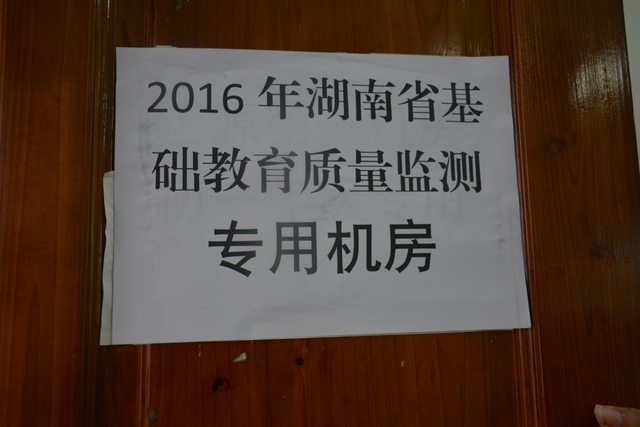 2016 年湖南省基
础教育质量监测
专用机房